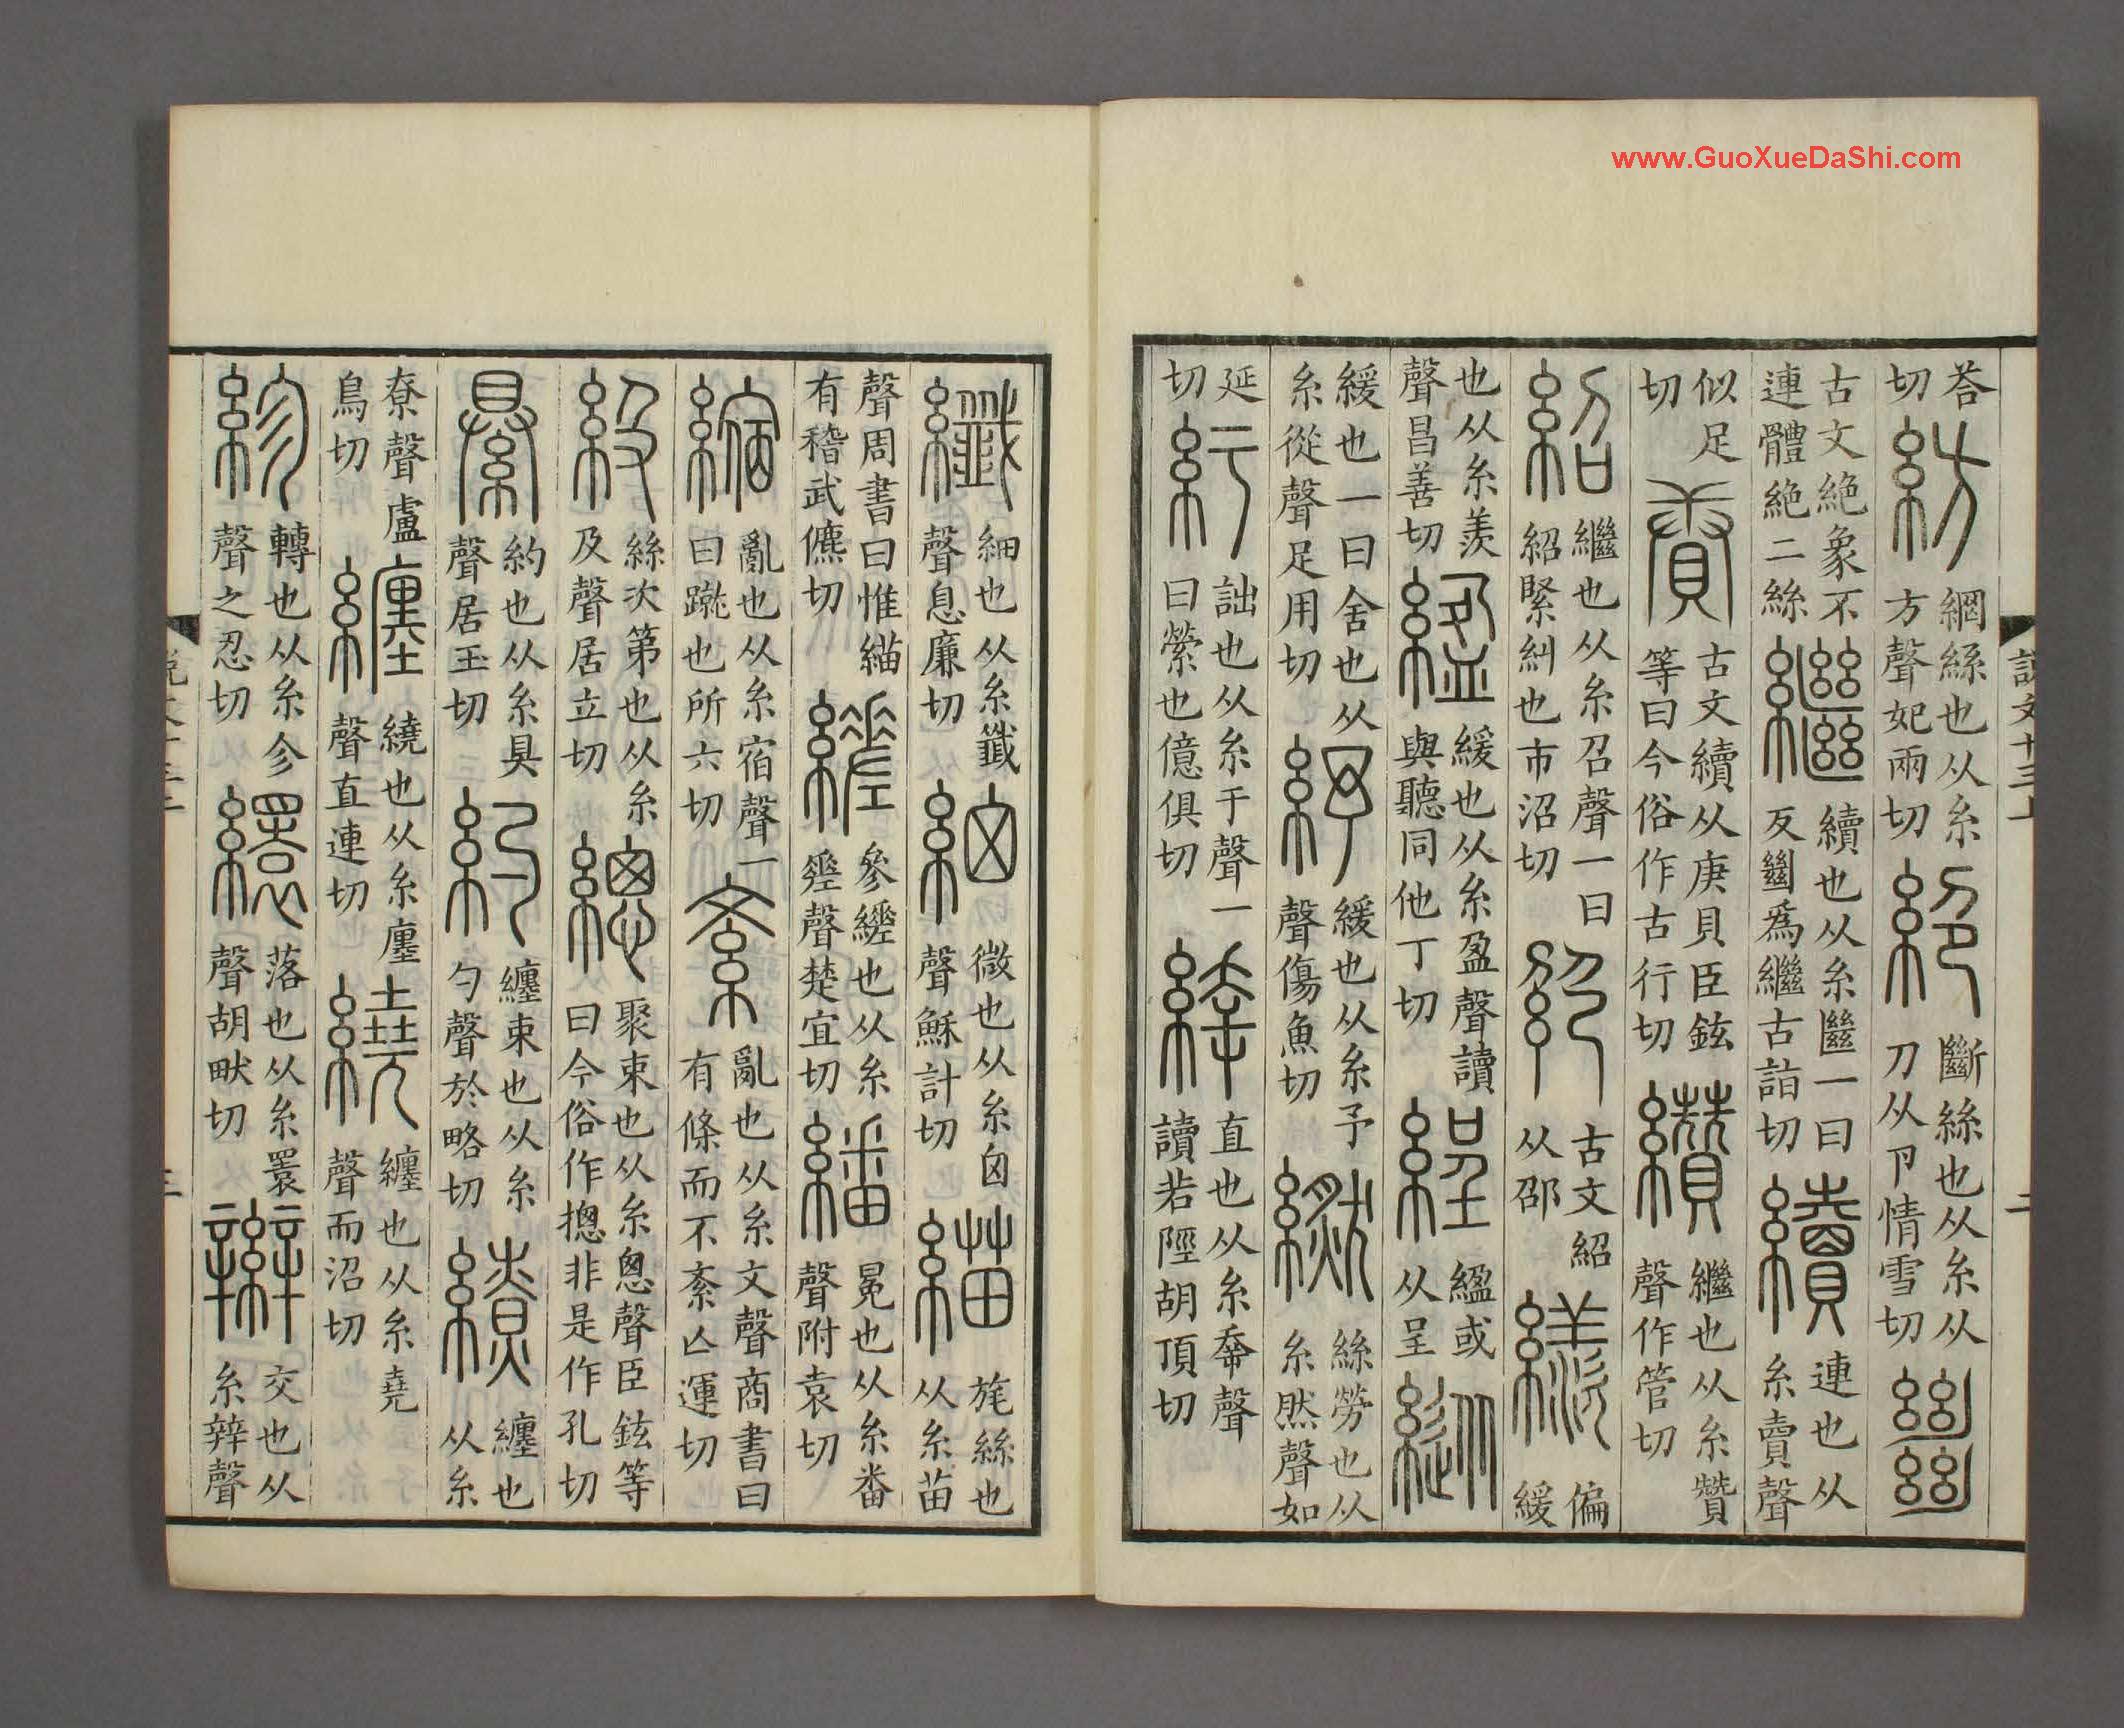 說文十三上 二
荅切 紡 網絲也从糸方聲妃兩切 絕 斷絲也从糸从刀从卪情雪切 𢇍
古文絕象不連體絕二絲 繼 續也从糸㡭一曰反𢇍爲繼古詣切 續 連也从糸賣聲
似足切 賡 古文續从庚貝臣鉉等曰今俗作古行切 纘 繼也从糸贊聲作管切
紹 繼也从糸召聲一曰紹緊糾也市沼切 古文紹从邵 偏緩
也从糸羨聲昌善切 緩也从糸盈聲讀與聽同他丁切 或从呈 縱
緩也一曰舍也从糸從聲足用切 紓 緩也从糸予聲傷魚切 繎 絲勞也从糸然聲如
延切 紆 詘也从糸于聲一曰縈也億俱切 緈 直也从糸𡴘聲讀若陘胡頂切
纖 細也从糸韱聲息廉切 細 微也从糸囟聲穌計切 緢 旄絲也从糸苗
聲周書曰惟緢有稽武儦切 縒 參縒也从糸差聲楚宜切 繙 冕也从糸番聲附袁切
縮 亂也从糸宿聲一曰蹴也所六切 紊 亂也从糸文聲商書曰有條而不紊亡運切
級 絲次第也从糸及聲居立切 總 聚束也从糸悤聲臣鉉等曰今俗作摠非是作孔切
約也从糸具聲居玉切 約 纏束也从糸勺聲於略切 繚 纏也从糸
尞聲盧鳥切 纏 繞也从糸廛聲直連切 繞 纏也从糸堯聲而沼切
紾 轉也从糸㐱聲之忍切 繯 落也从糸瞏聲胡畎切 辮 交也从糸辡聲
www.GuoXueDaShi.com